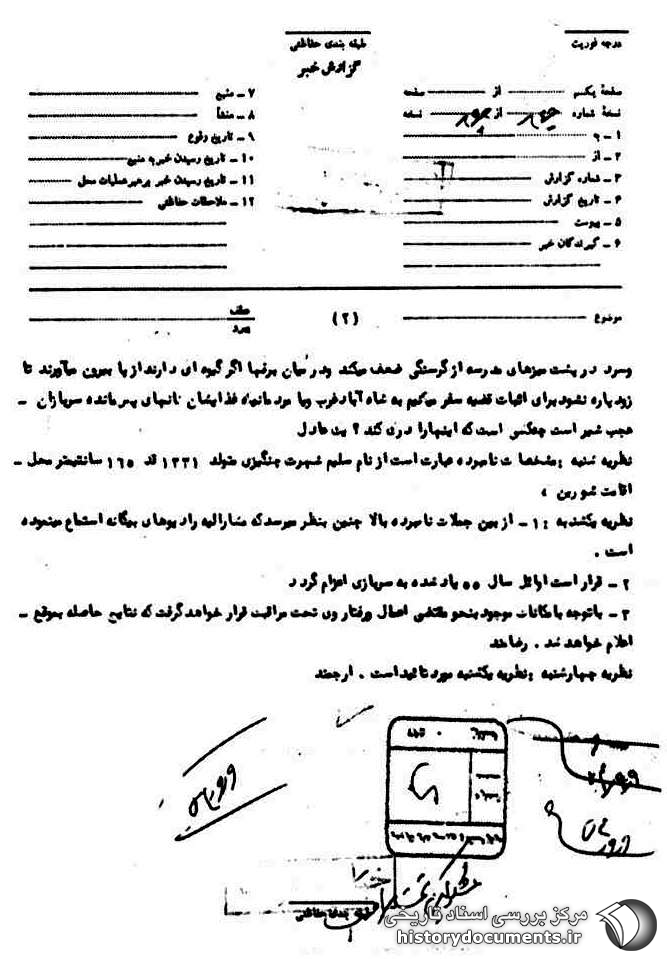 درجه فوریت
طبقه بندی حفاظتی
گزارش خبر
صفحهٔ یکم از صفحه
نسخهٔ شماره از نسخه
۱ - به
۲ - از
۳ - شماره گزارش
۴ - تاریخ گزارش
۵ - پیوست
۶ - گیرندگان خبر
۷ - منبع
۸ - منشأ
۹ - تاریخ وقوع
۱۰ - تاریخ رسیدن خبر به منبع
۱۱ - تاریخ رسیدن خبر به رهبر عملیات محل
۱۲ - ملاحظات حفاظتی
موضوع
(۲)
عطف
پیرو
وسرد در پشت میزهای مدرسه از گرسنگی ضعف میکند ودر میان برفها اگر گیوه ای دارند از پا بیرون میآورند تا
زود پاره نشود برای اثبات قضیه سفر میکنیم به شاه آباد غرب وبا مردمانیکه غذایشان نانهای پس مانده سربازان -
عجب شیر است چه کس است که اینها را درک کند ؟ بنده عادل
نظریه شنبه : مشخصات نامبرده عبارت است از نام سلیم شهرت چنگیزی متولد ۱۳۳۱ قد ۱۶۵ سانتیمتر محل -
اقامت
نظریه یکشنبه : ۱ - از بین جملات نامبرده بالا چنین بنظر میرسد که مشارالیه رادیوهای بیگانه استماع مینموده
است .
۲ - قرار است اوائل سال ۵۵ یاد شده به سربازی اعزام گردد
۳ - باتوجه بامکانات موجود بنحو مقتضی اعمال ورفتار وی تحت مراقبت قرار خواهد گرفت که نتایج حاصله بموقع -
اعلام خواهد شد .
نظریه چهارشنبه : نظریه یکشنبه مورد تائید است . ارجمند
طبقه بندی حفاظتی
مرکز بررسی اسناد تاریخی
historydocuments.ir